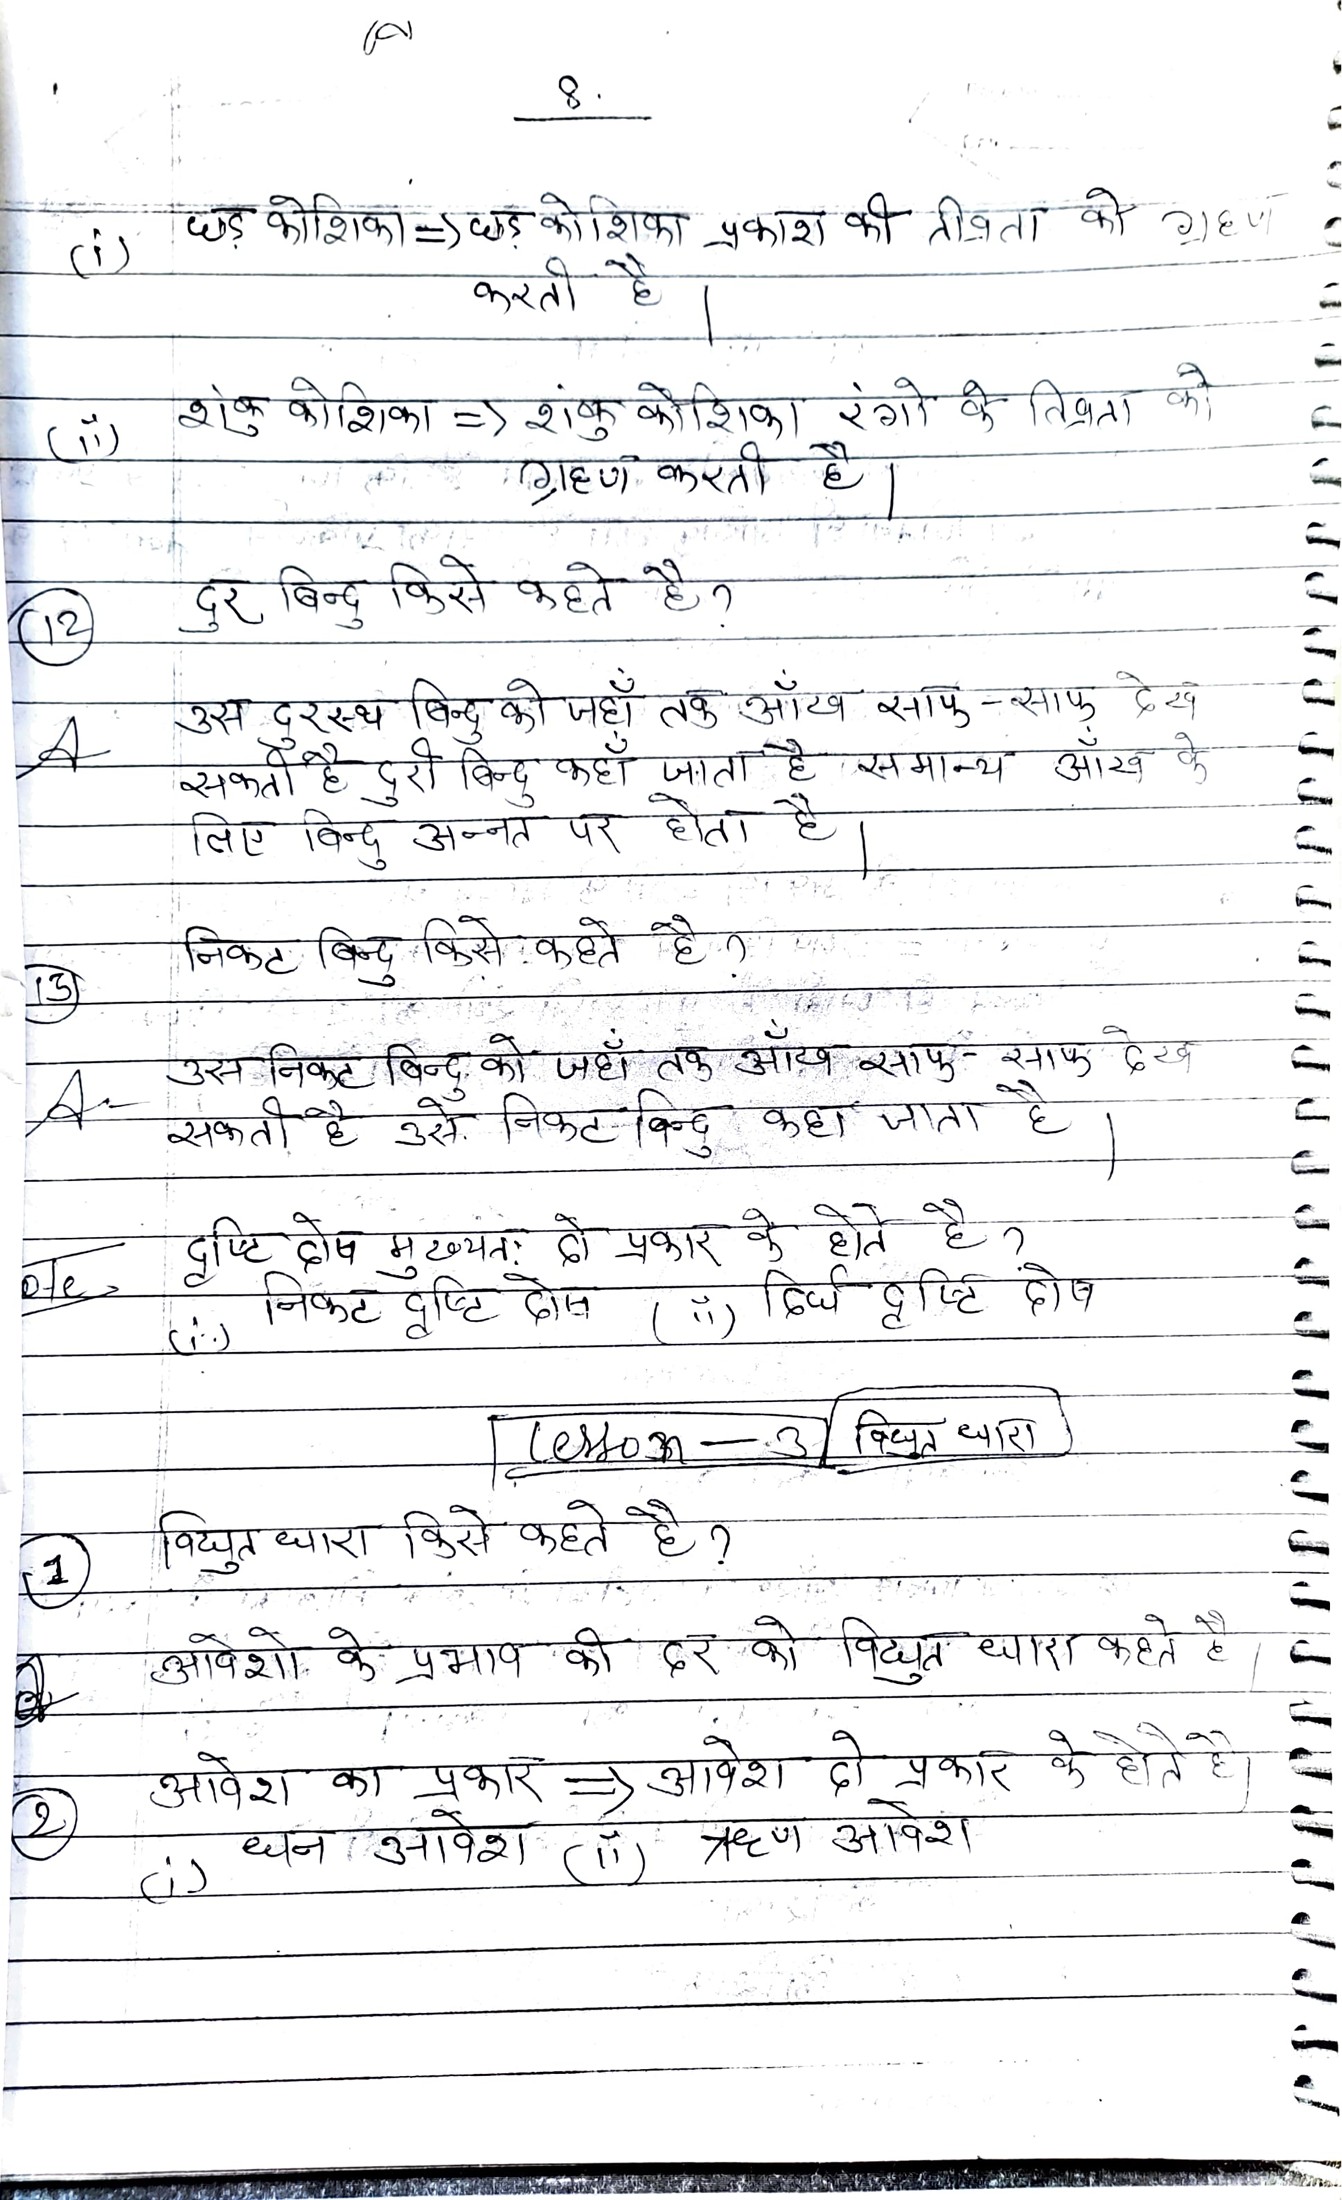 8.
(i) छड़ कोशिका => छड़ कोशिका प्रकाश की तीव्रता को ग्रहण
करती है |
(ii) शंकु कोशिका => शंकु कोशिका रंगो के तिव्रता को
ग्रहण करती है |
(12) दुर बिन्दु किसे कहते है?
A उस दुरस्थ बिन्दु को जहाँ तक आँख साफ-साफ देख
सकती है दुरी बिन्दु कहाँ जाता है समान्य आँख के
लिए बिन्दु अन्नत पर होता है |
(13) निकट बिन्दु किसे कहते है?
A- उस निकट बिन्दु को जहाँ तक आँख साफ- साफ देख
सकती है उसे निकट बिन्दु कहा जाता है |
ote दृष्टि दोष मुख्यतः दो प्रकार के होते है?
(i) निकट दृष्टि दोष (ii) दिर्घ दृष्टि दोष
Lesson - 3 विधुत धारा
(1) विधुत धारा किसे कहते है?
आवेशो के प्रभाव की दर को विधुत धारा कहते है |
(2) आवेश का प्रकार => आवेश दो प्रकार के होते है |
(i) धन आवेश (ii) ऋण आवेश